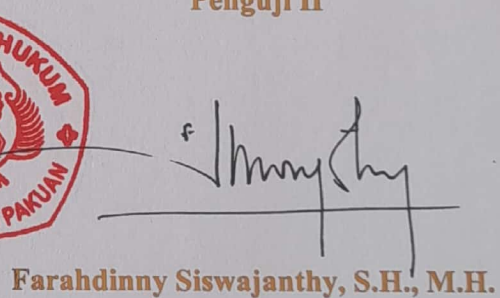 Penguji II
HUKUM
PAKUAN
Farahdinny Siswajanthy, S.H., M.H.